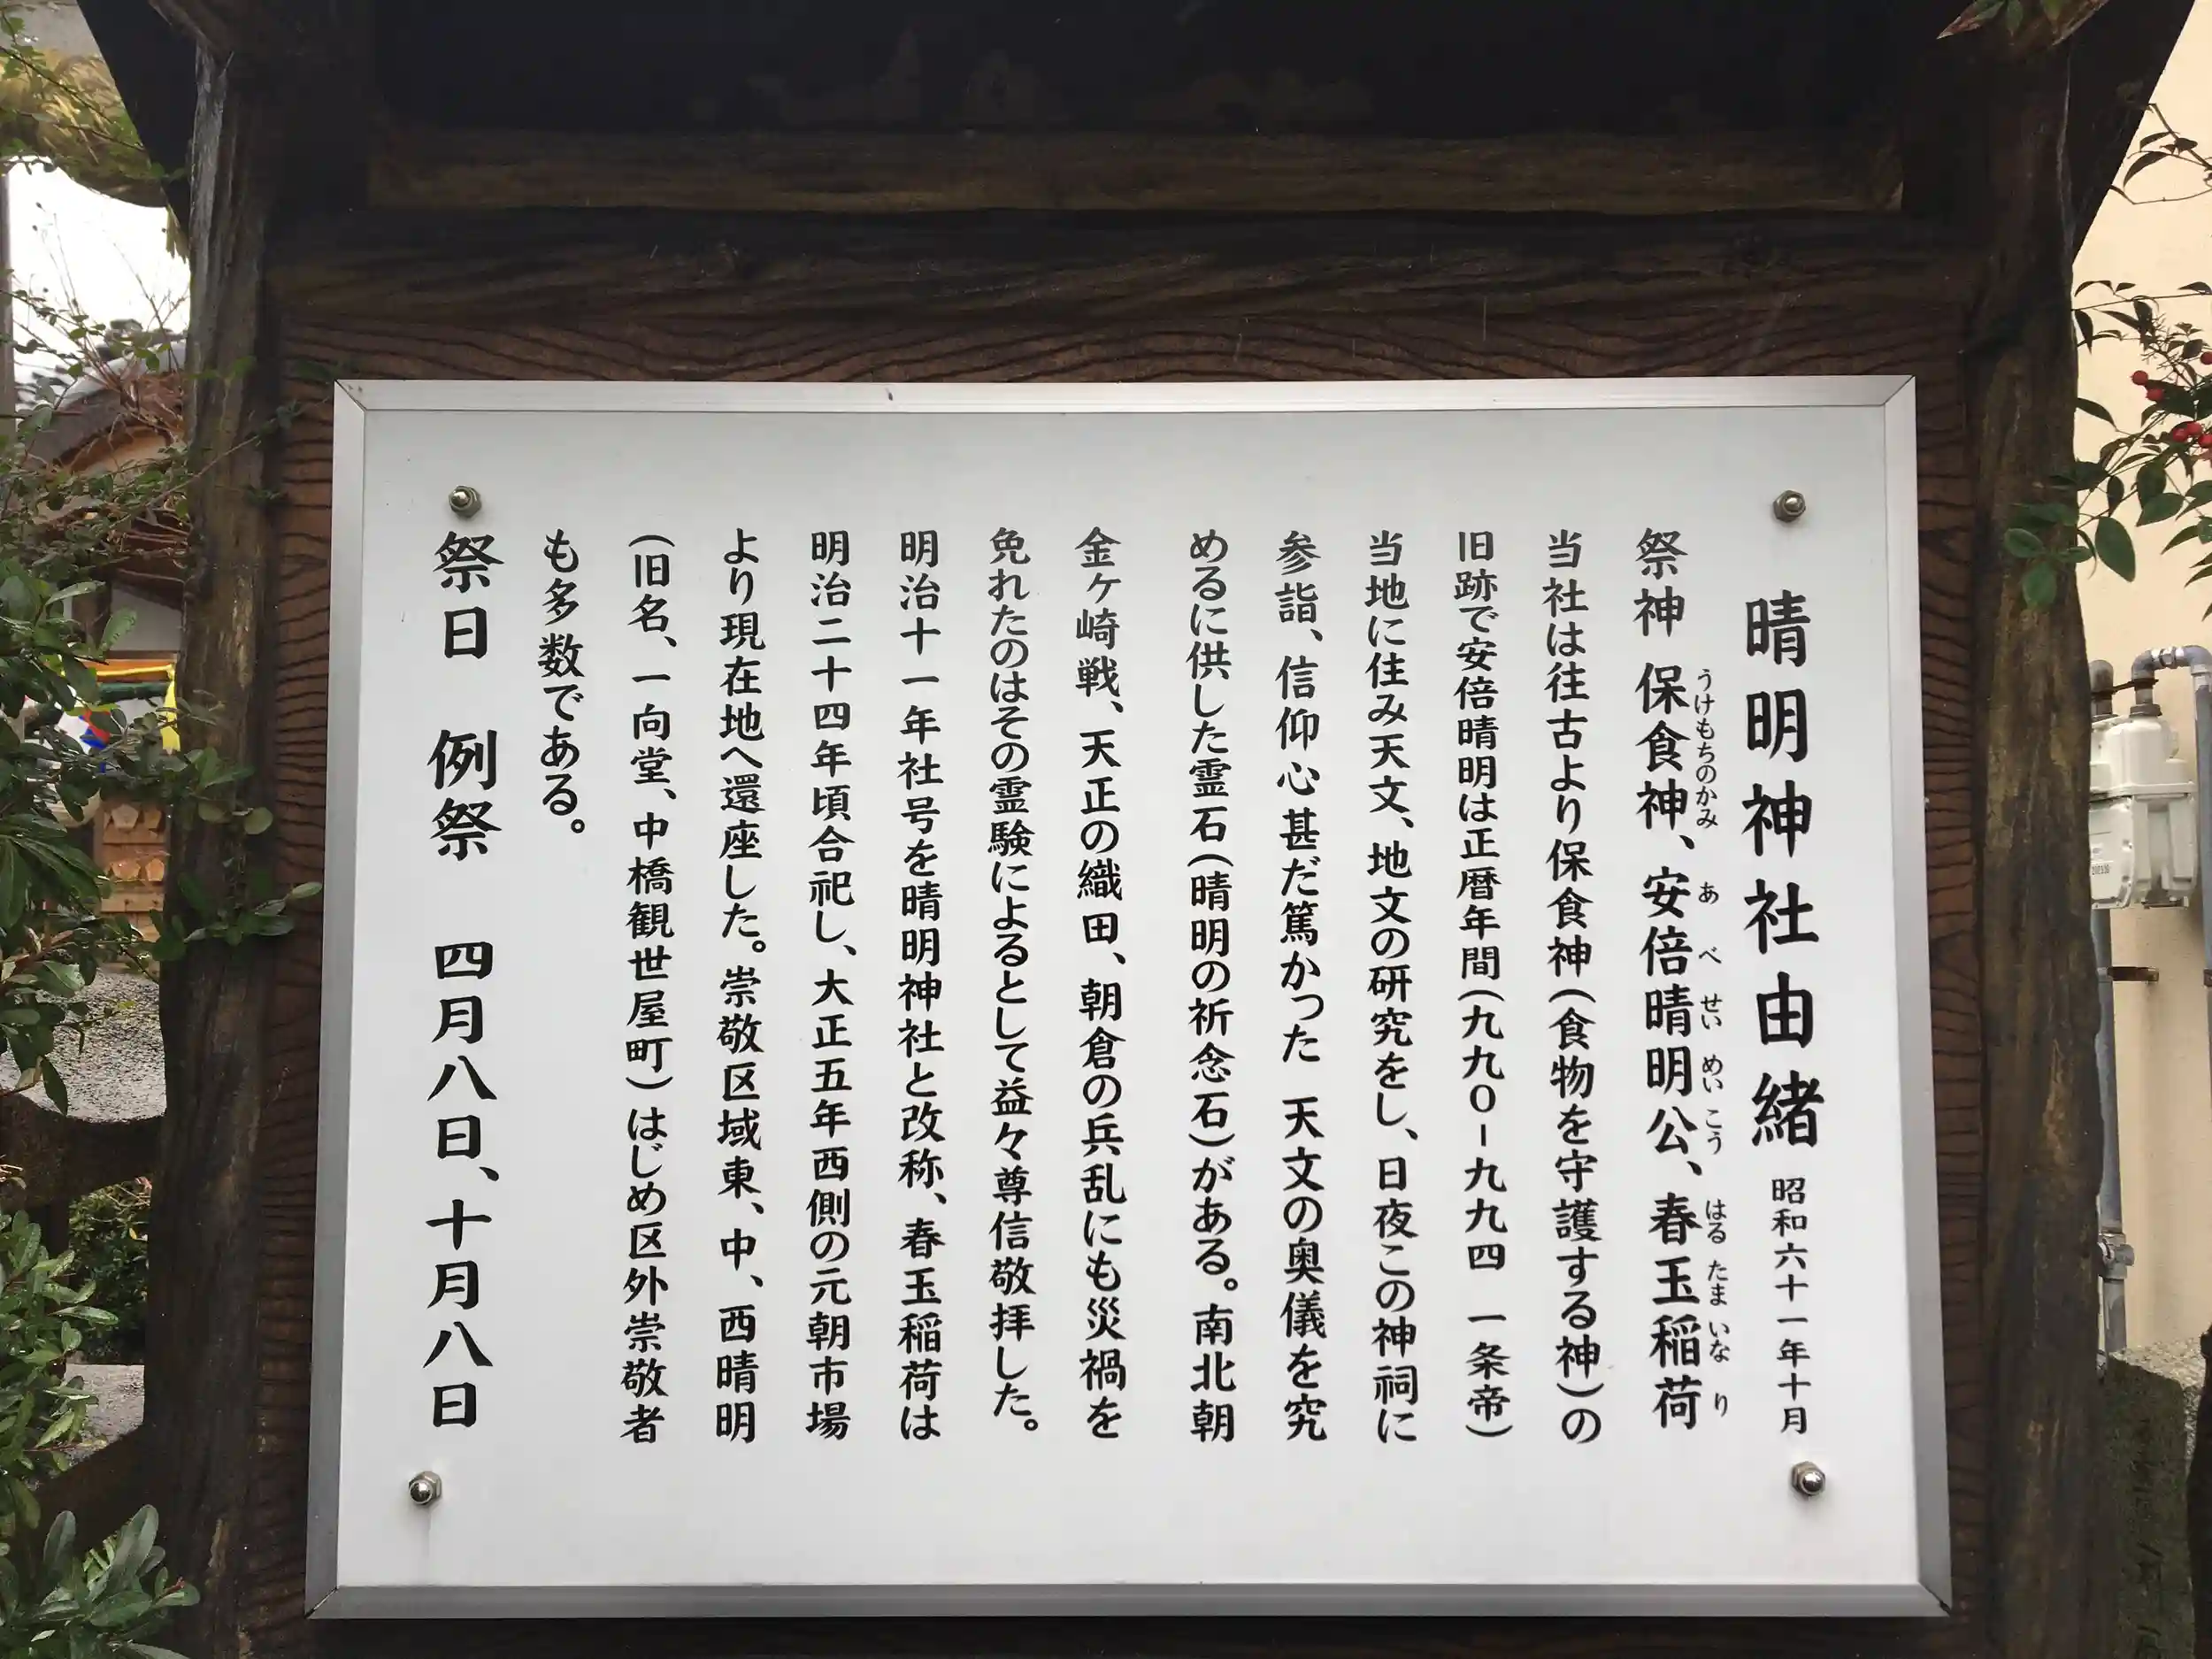 晴明神社由緒 昭和六十一年十月
祭神 保食神、安倍晴明公、春玉稲荷
うけもちのかみ あべ せいめいこう はるたまいなり
当社は往古より保食神(食物を守護する神)の
旧跡で安倍晴明は正暦年間(九九〇-九九四 一条帝)
当地に住み天文、地文の研究をし、日夜この神祠に
参詣、信仰心甚だ篤かった 天文の奥儀を究
めるに供した霊石(晴明の祈念石)がある。南北朝
金ヶ崎戦、天正の織田、朝倉の兵乱にも災禍を
免れたのはその霊験によるとして益々尊信敬拝した。
明治十一年社号を晴明神社と改称、春玉稲荷は
明治二十四年頃合祀し、大正五年西側の元朝市場
より現在地へ還座した。崇敬区域東、中、西晴明
(旧名、一向堂、中橋観世屋町)はじめ区外崇敬者
も多数である。
祭日 例祭 四月八日、十月八日